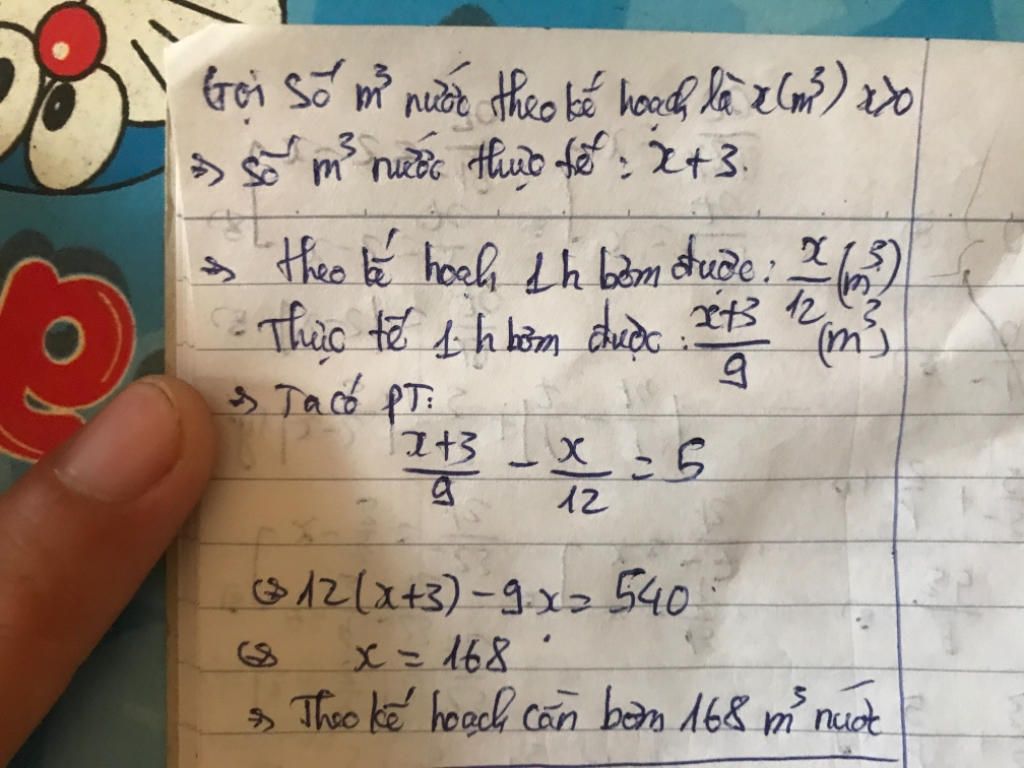 Gọi số m³ nước theo kế hoạch là x(m³) x>0
=> số m³ nước thực tế : x+3.
=> Theo kế hoạch 1h bơm được: x/12 (m³)
Thực tế 1h bơm được : (x+3)/9 (m³)
=> Ta có PT:
(x+3)/9 - x/12 = 5
<=> 12(x+3) - 9.x = 540
<=> x = 168
=> Theo kế hoạch cần bơm 168 m³ nước